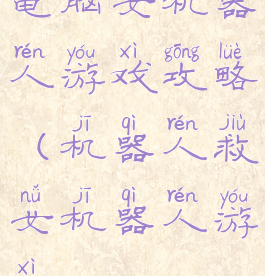 電脑女机器
rén yóu xì gōng lüè
人游戏攻略
jī qì rén jiù
(机器人救
nǚ jī qì rén yóu
女机器人游
xì